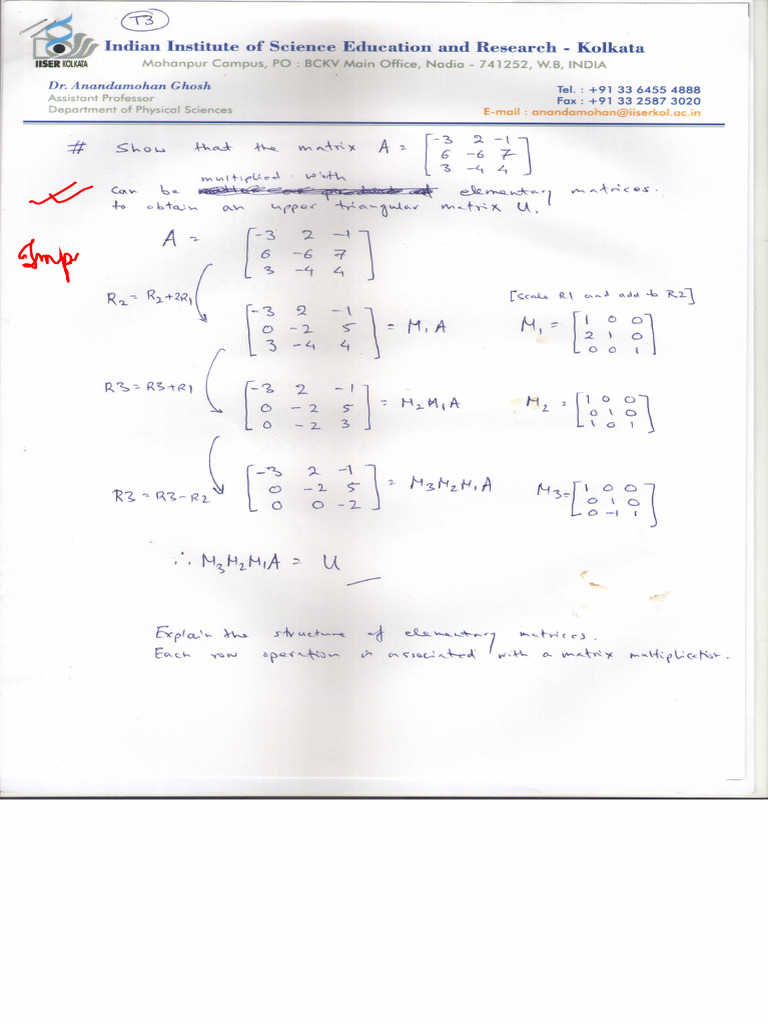 T3
Indian Institute of Science Education and Research - Kolkata
IISER KOLKATA
Mohanpur Campus, PO : BCKV Main Office, Nadia - 741252, W.B, INDIA
Dr. Anandamohan Ghosh
Assistant Professor
Department of Physical Sciences
Tel. : +91 33 6455 4888
Fax : +91 33 2587 3020
E-mail : anandamohan@iiserkol.ac.in
# Show that the matrix A = [-3 2 -1
6 -6 7
3 -4 4]
multiplied with
can be elementary matrices.
to obtain an upper triangular matrix U.
Imp
A = [-3 2 -1
6 -6 7
3 -4 4]
R2 = R2+2R1
[-3 2 -1
0 -2 5
3 -4 4] = M1A
[Scale R1 and add to R2]
M1 = [1 0 0
2 1 0
0 0 1]
R3 = R3+R1
[-3 2 -1
0 -2 5
0 -2 3] = M2M1A
M2 = [1 0 0
0 1 0
1 0 1]
R3 = R3-R2
[-3 2 -1
0 -2 5
0 0 -2] = M3M2M1A
M3 = [1 0 0
0 1 0
0 -1 1]
∴ M3M2M1A = U
Explain the structure of elementary matrices.
Each row operation is associated with a matrix multiplication.